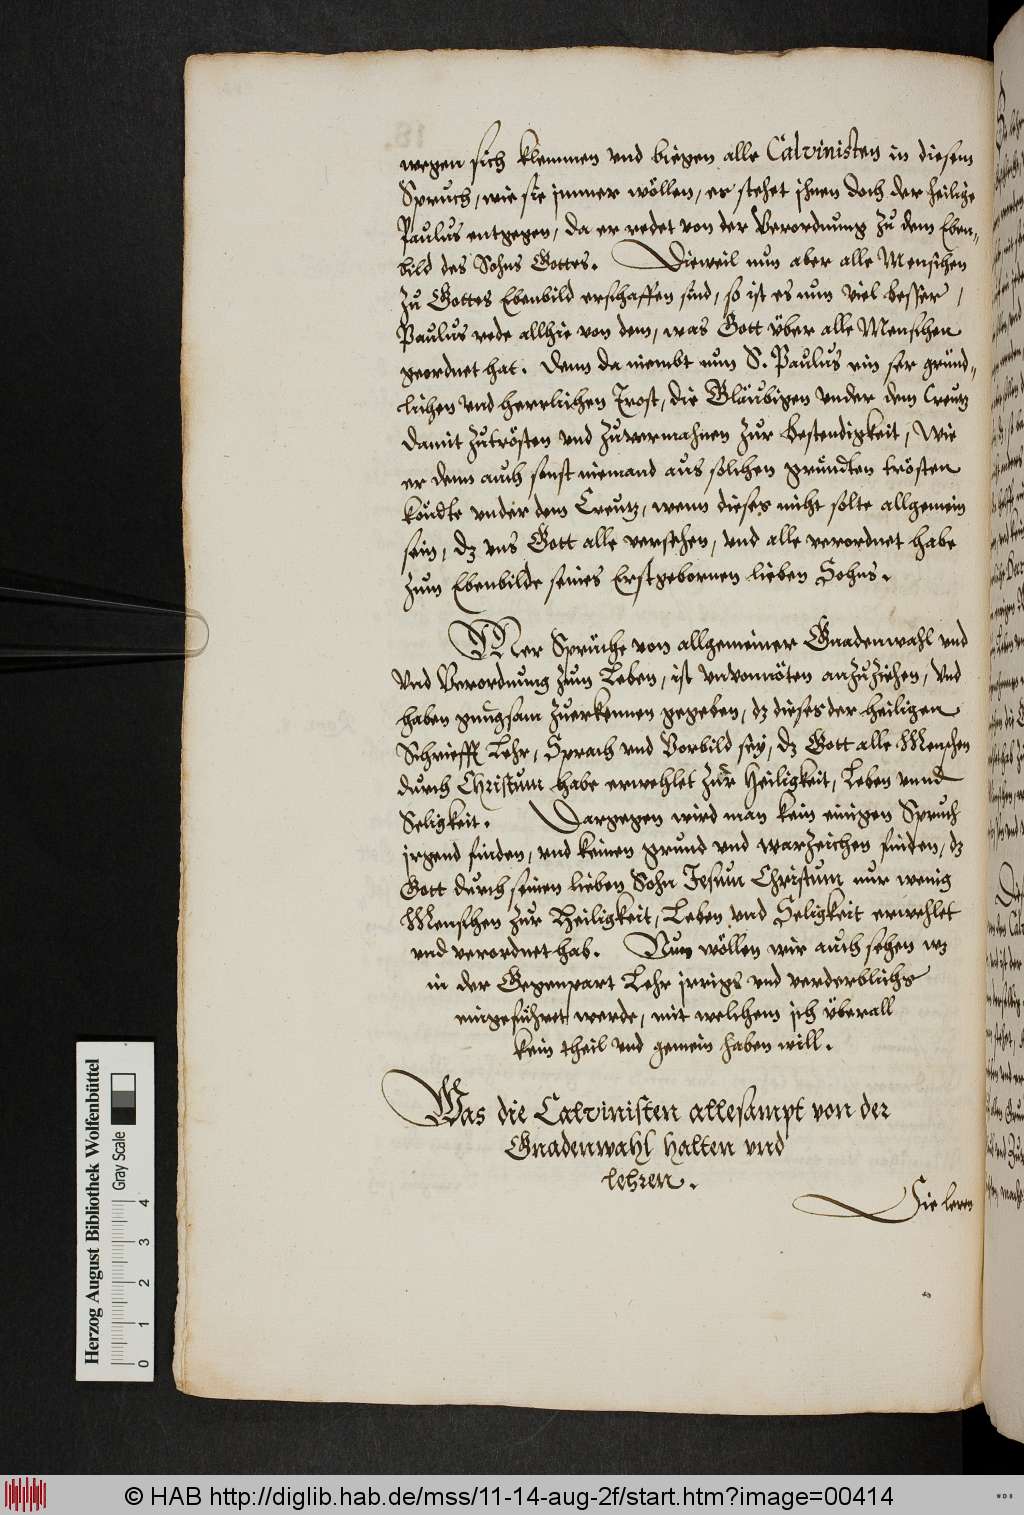 wegen sich klemmen vnd biegen alle Calvinisten in diesem
Spruch, wie sie jmmer wöllen, es stehet jhnen doch der heilige
Paulus entgegen, da er redet von der Verordnung zu dem Eben-
bild des Sohns Gottes. Dieweil nun aber alle Menschen
zu Gottes Ebenbild erschaffen sind, so ist es nun viel besser,
Paulus rede allhie von dem, was Gott über alle Menschen
geordnet hat. Denn da niembt nun S. Paulus ein ser gründ-
lichen vnd herrlichen Trost, die Gläubigen vnder dem Creutz
damit zutrösten vnd zuvermahnen zur bestendigkeit, Wie
er denn auch sonst niemand aus solchen gründten trösten
köndte vnder dem Creutz, wenn dieses nicht solte allgemein
sein, dz vns Gott alle versehen, vnd alle verordnet habe
zum Ebenbilde seines Erstgebornen lieben Sohns.
Mer Sprüche von allgemeiner Gnadenwahl vnd
Vnd Verordnung zum Leben, ist vnvonnöten anzuziehen, Vnd
haben gnugsam zuerkennen gegeben, dz dieses der heiligen
Schriefft Lehr, Sprach vnd Vorbild sey, dz Gott alle Menschen
durch Christum habe erwehlet zur Heiligkeit, Leben vnnd
Seligkeit. Dargegen wird man kein einigen Spruch
jrgend finden, vnd keinen grund vnd warzeichen finden, dz
Gott durch seinen lieben Sohn Jesum Christum nur wenig
Menschen zur Heiligkeit, Leben vnd Seligkeit erwehlet
vnd verordnet hab. Nun wöllen wir auch sehen wz
in der Gegenpart Lehr jrrigs vnd verderblichs
eingeführet werde, mit welchem jch überall
kein theil vnd gemein haben will.
Was die Calvinisten allesampt von der
Gnadenwahl halten vnd
lehren.
Sie leren
Herzog August Bibliothek Wolfenbüttel
Gray Scale
0 1 2 3 4
© HAB http://diglib.hab.de/mss/11-14-aug-2f/start.htm?image=00414